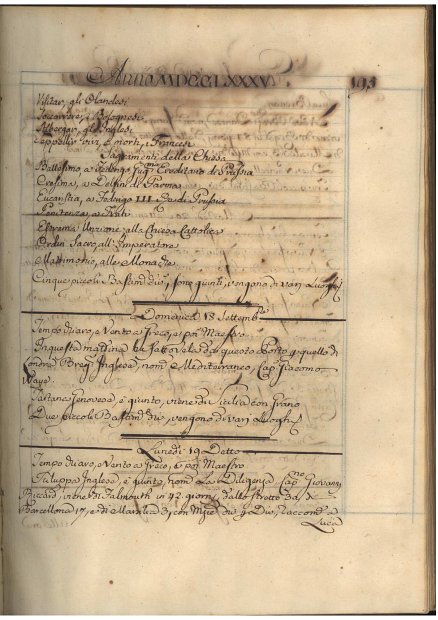 Anno MDCCLXXXV 193
Visitar, gli Olandesi
Soccorrere, i Bolognesi
Albergar, gl'Inglesi
Seppellir vivi, e morti, Francesi
Sagramenti della Chiesa
Battesimo, a Prussia
Cresima, a Delfini di Parma
Eucaristia, a Fedrigo III Prussia
Penitenza, a
Estrema Unzione, alla Chiesa Cattolica
Ordin Sacro, all'Imperatore
Matrimonio, alle Monache
Cinque piccoli Bastim. div. sono giunti, vengono di vari Luoghi
Domenica 18 Settemb.
Tempo chiaro, e Vento a Greco, e poi Maestro
In questa mattina ha fatto vela da questo Porto p. quello di
Londra Inglese, nom. il Mediterraneo, Cap. Giacomo
Waye.
Tartana Genovese, è giunto, viene di Sicilia con Grano
Due piccoli Bastim. div. vengono di vari Luoghi
Lunedi 19 Detto
Tempo chiaro, e Vento a Greco, e poi Maestro
Filuppa Inglese, è giunto, nom. La Diligenza Cap.no Giovanni
viene di Falmouth in 42 giorni, dallo stretto
Barcellona 17, e di Marsilia 3, con div. Raccom. a
Luca